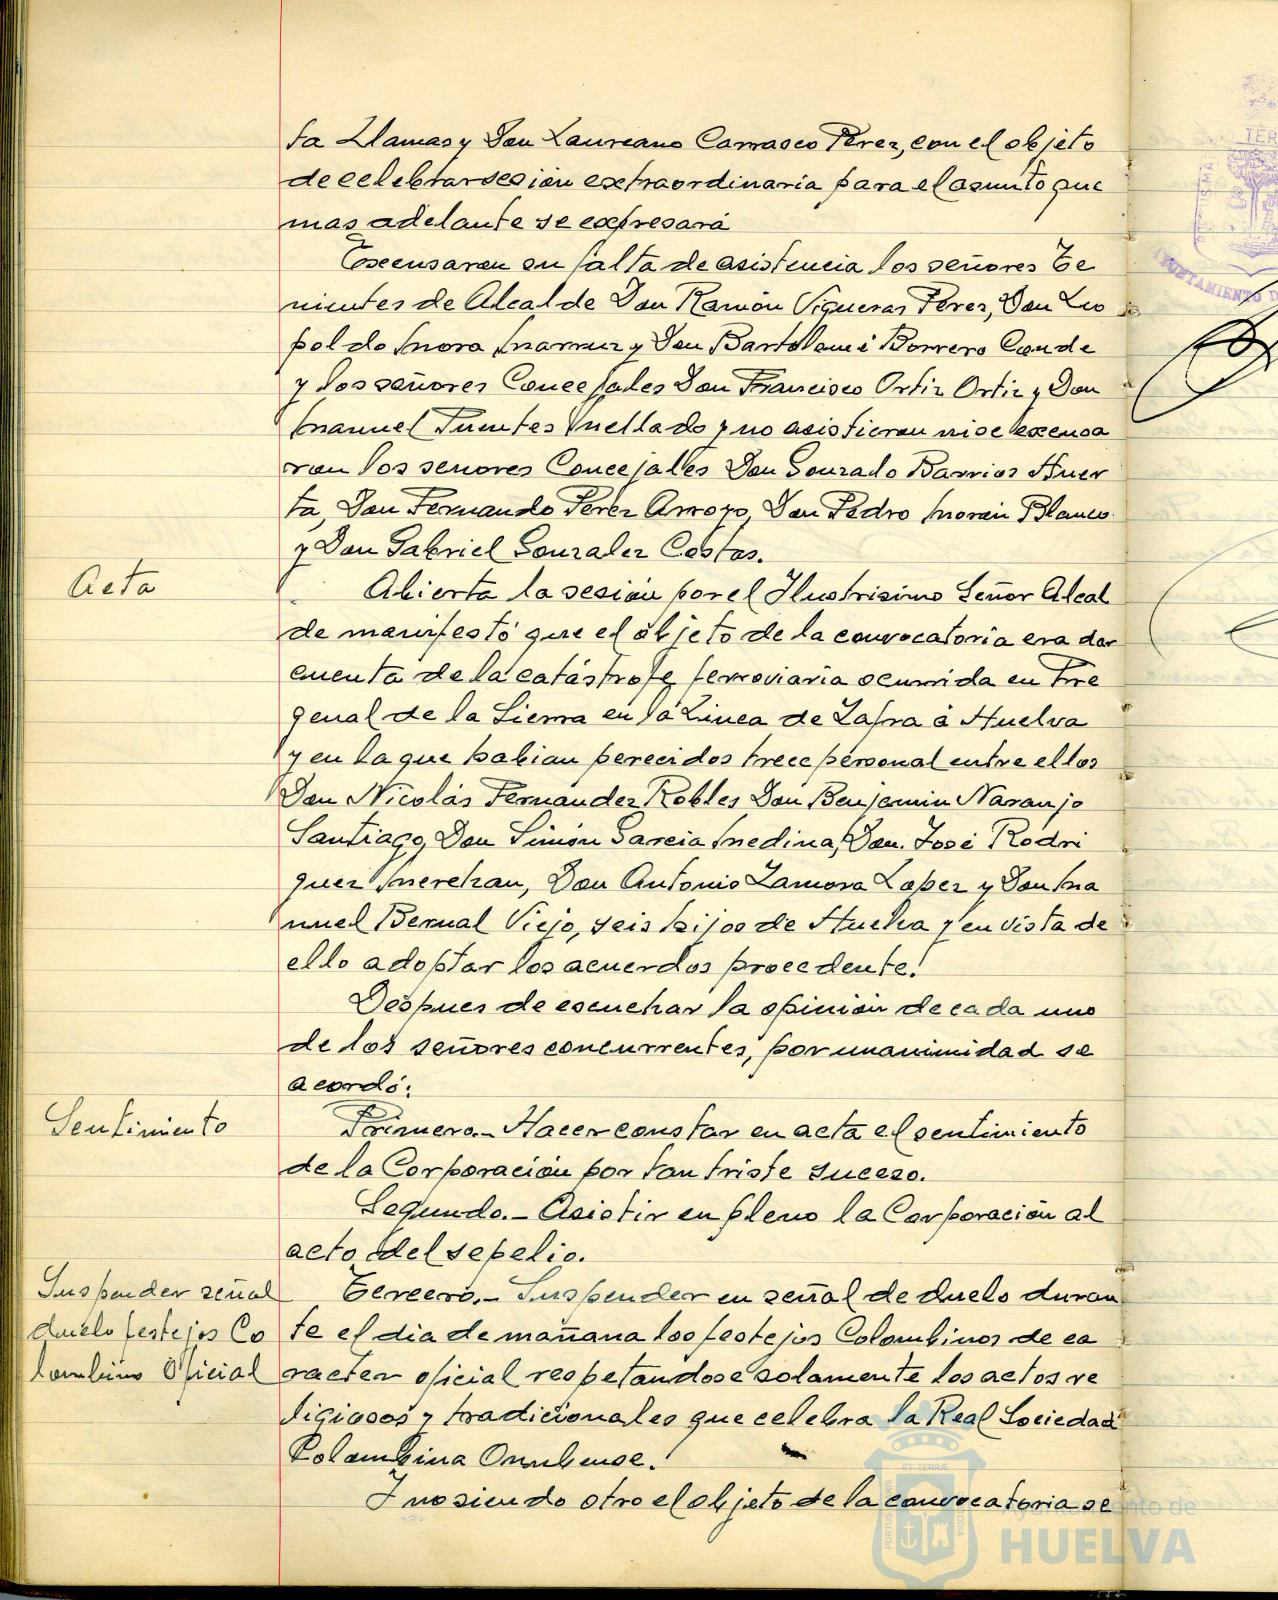 ta Llamas y Don Laureano Carrasco Perez, con el objeto
de celebrar sesión extraordinaria para el asunto que
mas adelante se expresará
Excusaron su falta de asistencia los señores Te
nientes de Alcalde Don Ramón Vigueras Perez, Don Leo
poldo Mora y Don Bartolomé Borrero Conde
y los señores Concejales Don Francisco Ortiz Ortiz y Don
Manuel Fuentes Mellado y no asistieron ni se excusa
ron los señores Concejales Don Gonzalo Barrios Huer
ta, Don Fernando Perez Arroyo, Don Pedro Morón Blanco
y Don Gabriel Gonzalez Costas.
Acta
Abierta la sesión por el Ilustrisimo Señor Alcal
de manifestó que el objeto de la convocatoria era dar
cuenta de la catástrofe ferroviaria ocurrida en Fre
genal de la Sierra en la Linea de Zafra á Huelva
y en la que habian perecidos trece personal entre ellos
Don Nicolás Fernandez Robles Don Benjamin Naranjo
Santiago, Don Simón Garcia Medina, Don. José Rodri
guez Merchan, Don Antonio Zamora Lopez y Don Ma
nuel Bernal Viejo, seis hijos de Huelva y en vista de
ello adoptar los acuerdos procedente!
Despues de escuchar la opinión de cada uno
de los señores concurrentes, por unanimidad se
acordó:
Sentimiento
Primero.- Hacer constar en acta el sentimiento
de la Corporación por tan triste suceso.
Segundo.- Asistir en pleno la Corporación al
acto del sepelio.
Suspender señal
duelo festejos Co
lombino Oficial
Tercero.- Suspender en señal de duelo duran
te el dia de mañana los festejos Colombinos de ca
racter oficial respetandose solamente los actos re
ligiosos y tradicionales que celebra la Real Sociedad
Colombina Onubense.
Y no siendo otro el objeto de la convocatoria se
Ayuntamiento de
HUELVA